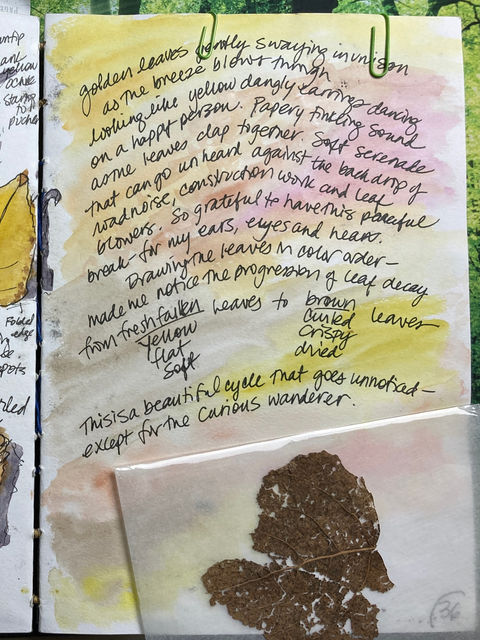 golden leaves gently swaying in unison
as the breeze blows through
looking like yellow dangly earrings dancing
on a happy person. Papery tinkling sound
as the leaves clap together. Soft serenade
that can go unheard against the backdrop of
road noise, construction work and leaf
blowers. So grateful to have this peaceful
break - for my ears, eyes and heart.
Drawing the leaves in color order -
made me notice the progression of leaf decay
from fresh fallen leaves to brown leaves
yellow curled
flat crispy
soft dried
This is a beautiful cycle that goes unnoticed -
except for the curious wanderer.
36
and
yellow
ochre
starting
to
pucker
Folded
edge
spots